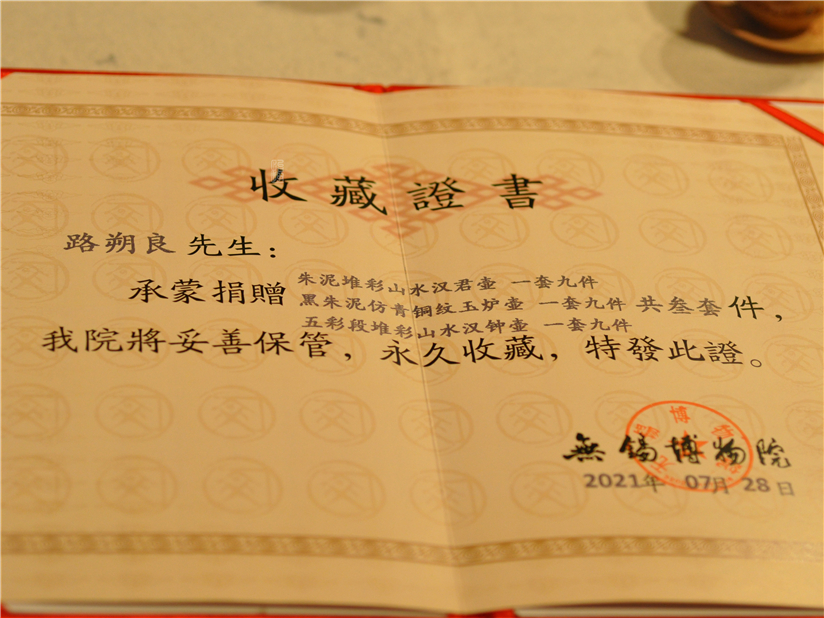 收藏證書
路朔良 先生：
承蒙捐贈
朱泥堆彩山水汉君壶 一套九件
黑朱泥仿青铜纹玉炉壶 一套九件
五彩段堆彩山水汉钟壶 一套九件
共叁套件，
我院將妥善保管，永久收藏，特發此證。
無錫博物院
2021年 07月 28日